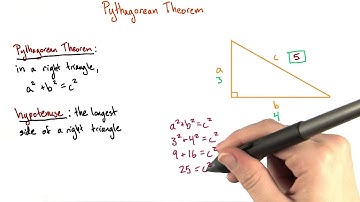 Pythagorean Theorem
Pythagorean Theorem:
in a right triangle,
a² + b² = c²
hypotenuse: the longest
side of a right triangle
a
3
c
5
b
4
a² + b² = c²
3² + 4² = c²
9 + 16 = c²
25 = c²